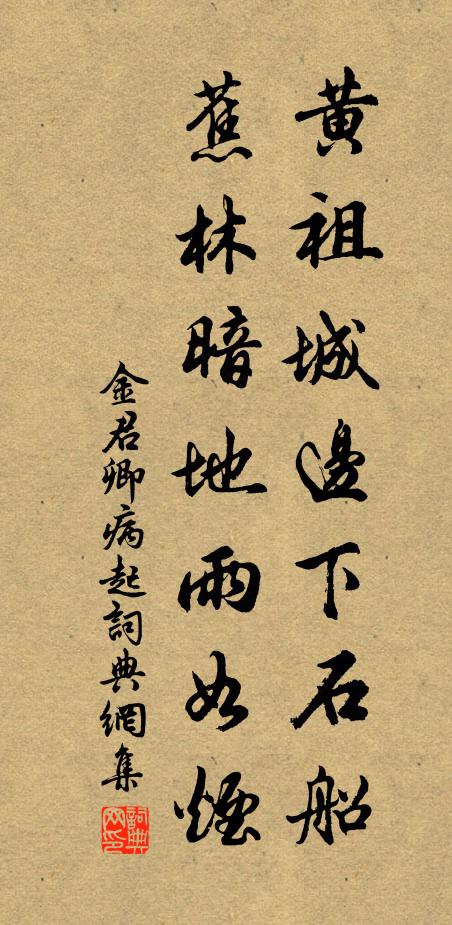 黄祖城邊下石船
蕉林暗地雨如煙
金君卿病起詞典網集
詞典網印